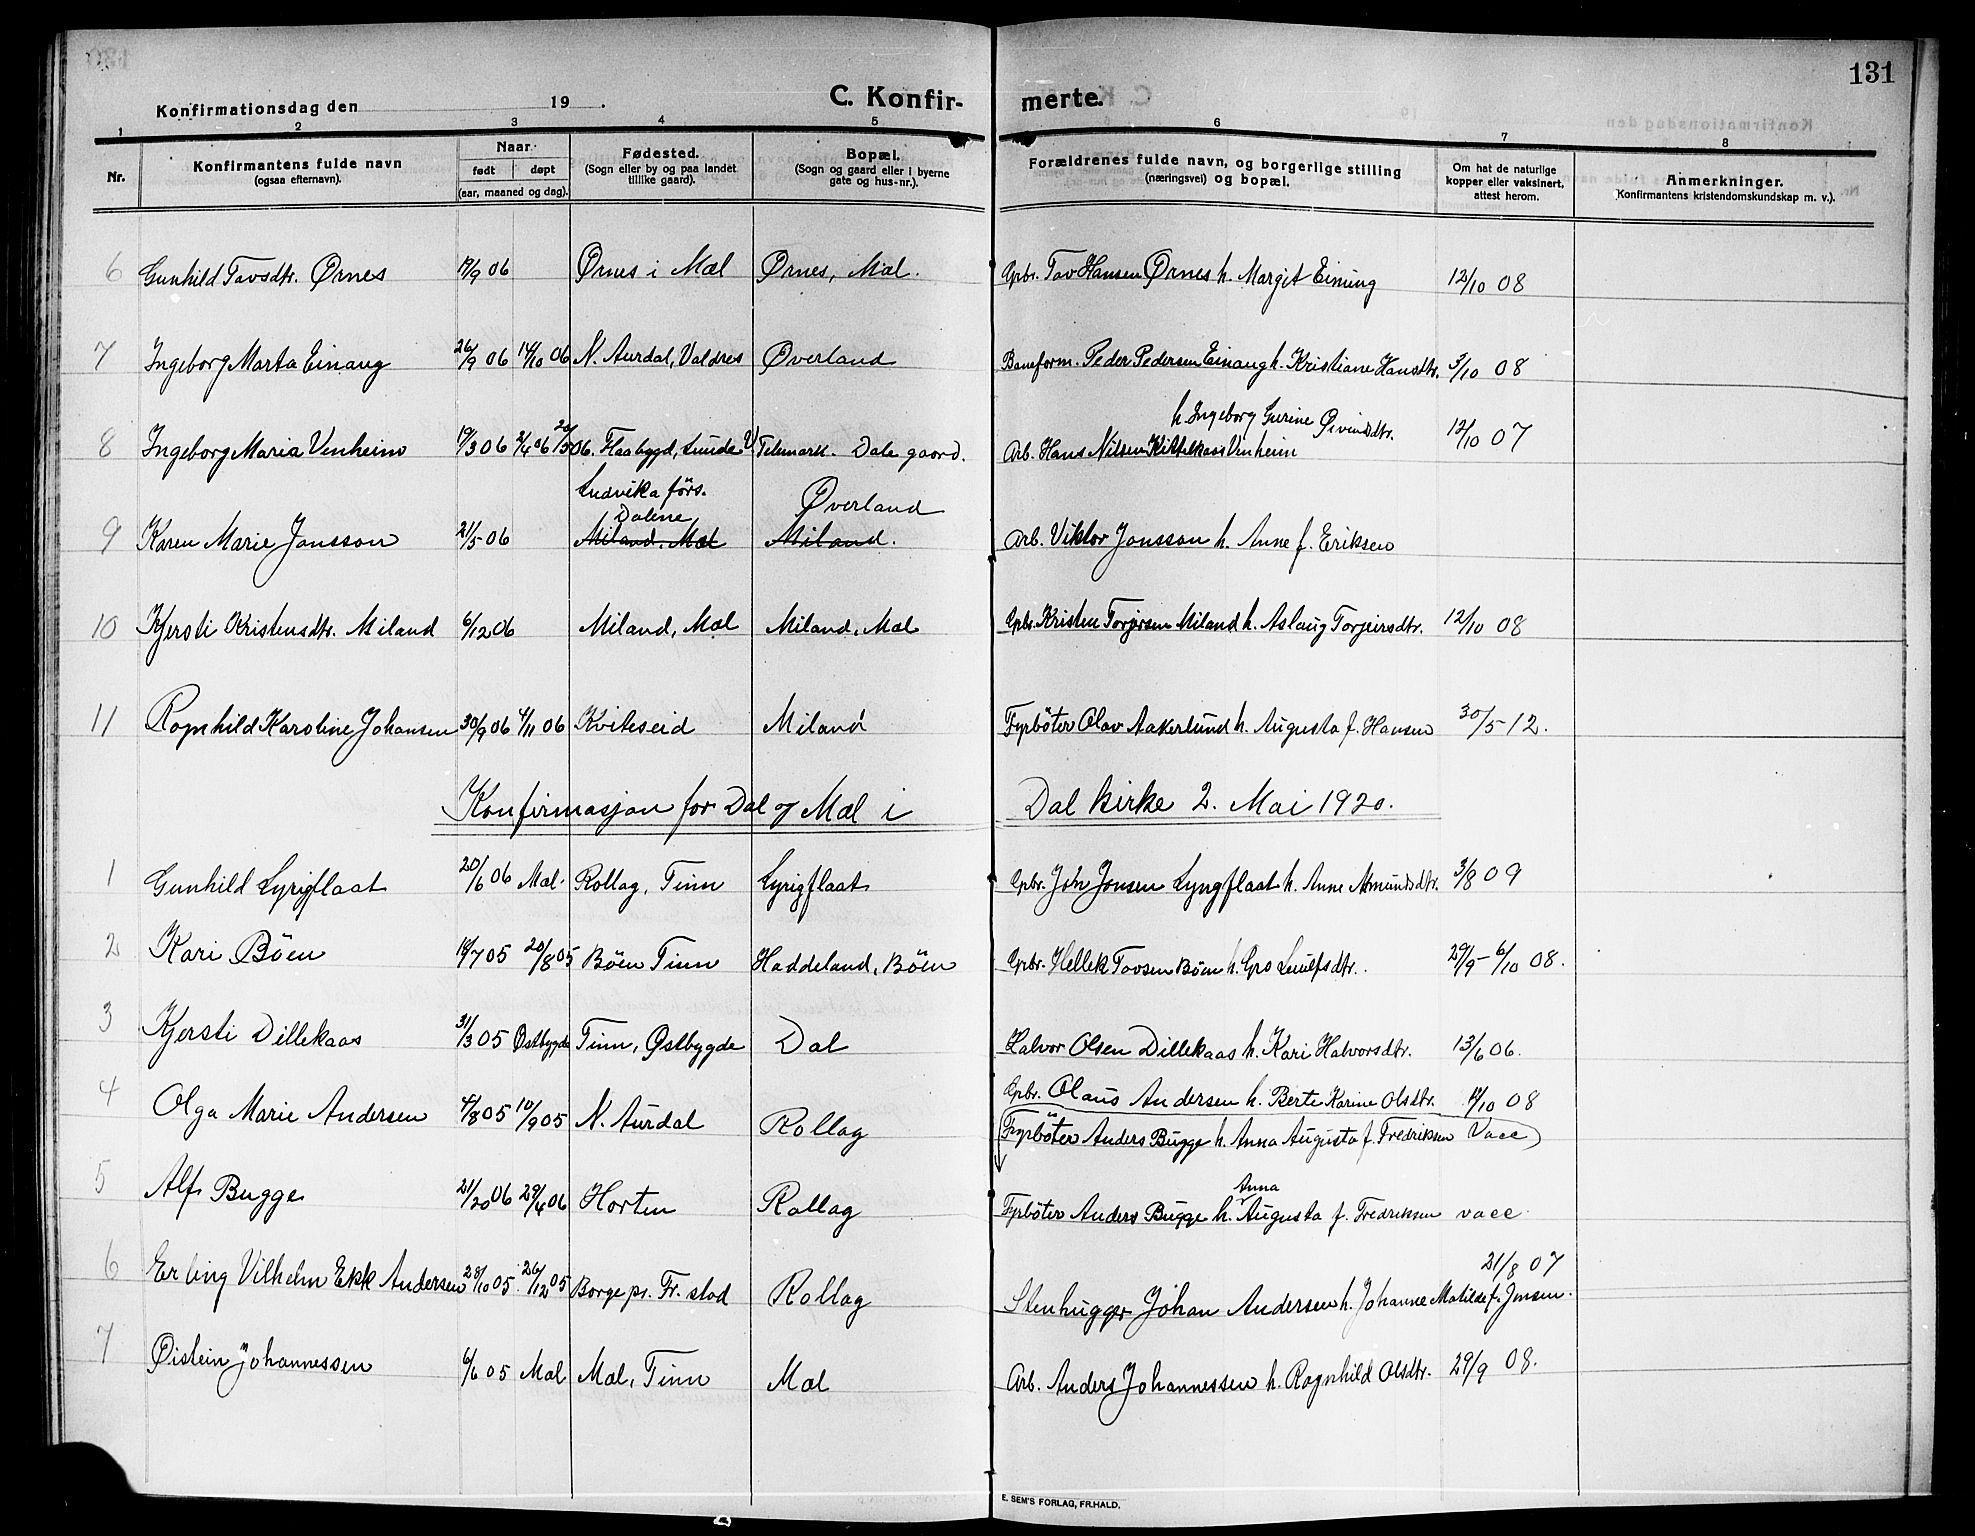 131
Konfirmationsdag den 19 .
C. Konfir- merte.
1 2 3 4 5 6 7 8
Nr.
Konfirmantens fulde navn
(ogsaa efternavn).
Naar
født døpt
(aar, maaned og dag).
Fødested.
(Sogn eller by og paa landet
tillike gaard).
Bopæl.
(Sogn og gaard eller i byerne
gate og hus-nr.).
Forældrenes fulde navn, og borgerlige stilling
(næringsvei) og bopæl.
Om hat de naturlige
kopper eller vaksinert,
attest herom.
Anmerkninger.
(Konfirmantens kristendomskundskap m. v.).
6 Gunhild Tovsdtr. Ørnes /9 06 Ørnes i Mæl Ørnes, Mæl. Gbr. Tov Hansen Ørnes h. Margit Einung 12/10 08
7 Ingeborg Marta Einang 26/9 06 14/10 06 N. Aurdal, Valdres Øverland Baneform. Peder Pedersen Einang h. Kristiane Hansdtr. 3/10 08
h. Ingeborg Gurine Øivindsdtr.
8 Ingeborg Maria Venheim 19/3 06 2/4 06 20/5 06. Flaabygd, Lunde V. Telemark. Dale gaard. Arb. Hans Nilsen Kittelkaas Venheim 12/10 07
Ludvika förs.
Dalene, Øverland
9 Karen Marie Jansson 21/5 06 Miland, Mæl Miland. Arb. Viktor Jansson h. Anne f. Eriksen
10 Kjersti Kristensdtr. Miland 6/12 06 Miland, Mæl Miland, Mæl Gbr. Kristen Torjersen Miland h. Aslaug Torjeirsdtr. 12/10 08
11 Ragnhild Karoline Johansen 30/9 06 4/11 06 Kviteseid Miland Fyrböter Olav Aakerlund h. Augusta f. Hansen 30/5 12.
Konfirmasjon for Dal og Mæl i Dal kirke 2. Mai 1920.
1 Gunhild Lyngflaat 20/6 06 Mæl. Rollag, Tinn Lyngflaat Gbr. Joh Jonsen Lyngflaat h. Anne Amundsdtr. 3/8 09
2 Kari Böen /7 05 20/8 05 Böen Tinn Haddeland, Böen Gbr. Hellek Tovsen Böen h. Gro Leiulfsdtr. 29/9 - 6/10 08.
3 Kjersti Dillekaas 31/3 05 Østbygde Tinn, Østbygde Dal Halvor Olsen Dillekaas h. Kari Halvorsdtr. 13/6 06.
4 Olga Marie Andersen 4/8 05 10/9 05 N. Aurdal Rollag Gbr. Olaus Andersen h. Berte Karine Olsdtr. /10 08
Fyrböter Anders Bugge h. Anna Augusta f. Fredriksen Vacc
5 Alf Bugge 21/20 06 29/4 06 Horten Rollag Fyrböter Anders Bugge h. Anna Augusta f. Fredriksen vacc.
6 Erling Vilhelm Ekk Andersen 28/10 05 26/12 05 Borge pr. Fr. stad Rollag Stenhugger Johan Andersen h. Johanne Matilde f. Jensen. 21/8 07
7 Øistein Johannessen 6/6 05 Mæl Mæl, Tinn Mæl Arb. Anders Johannessen h. Ragnhild Olsdtr. 29/9 08.
E. SEM'S FORLAG, FR.HALD.